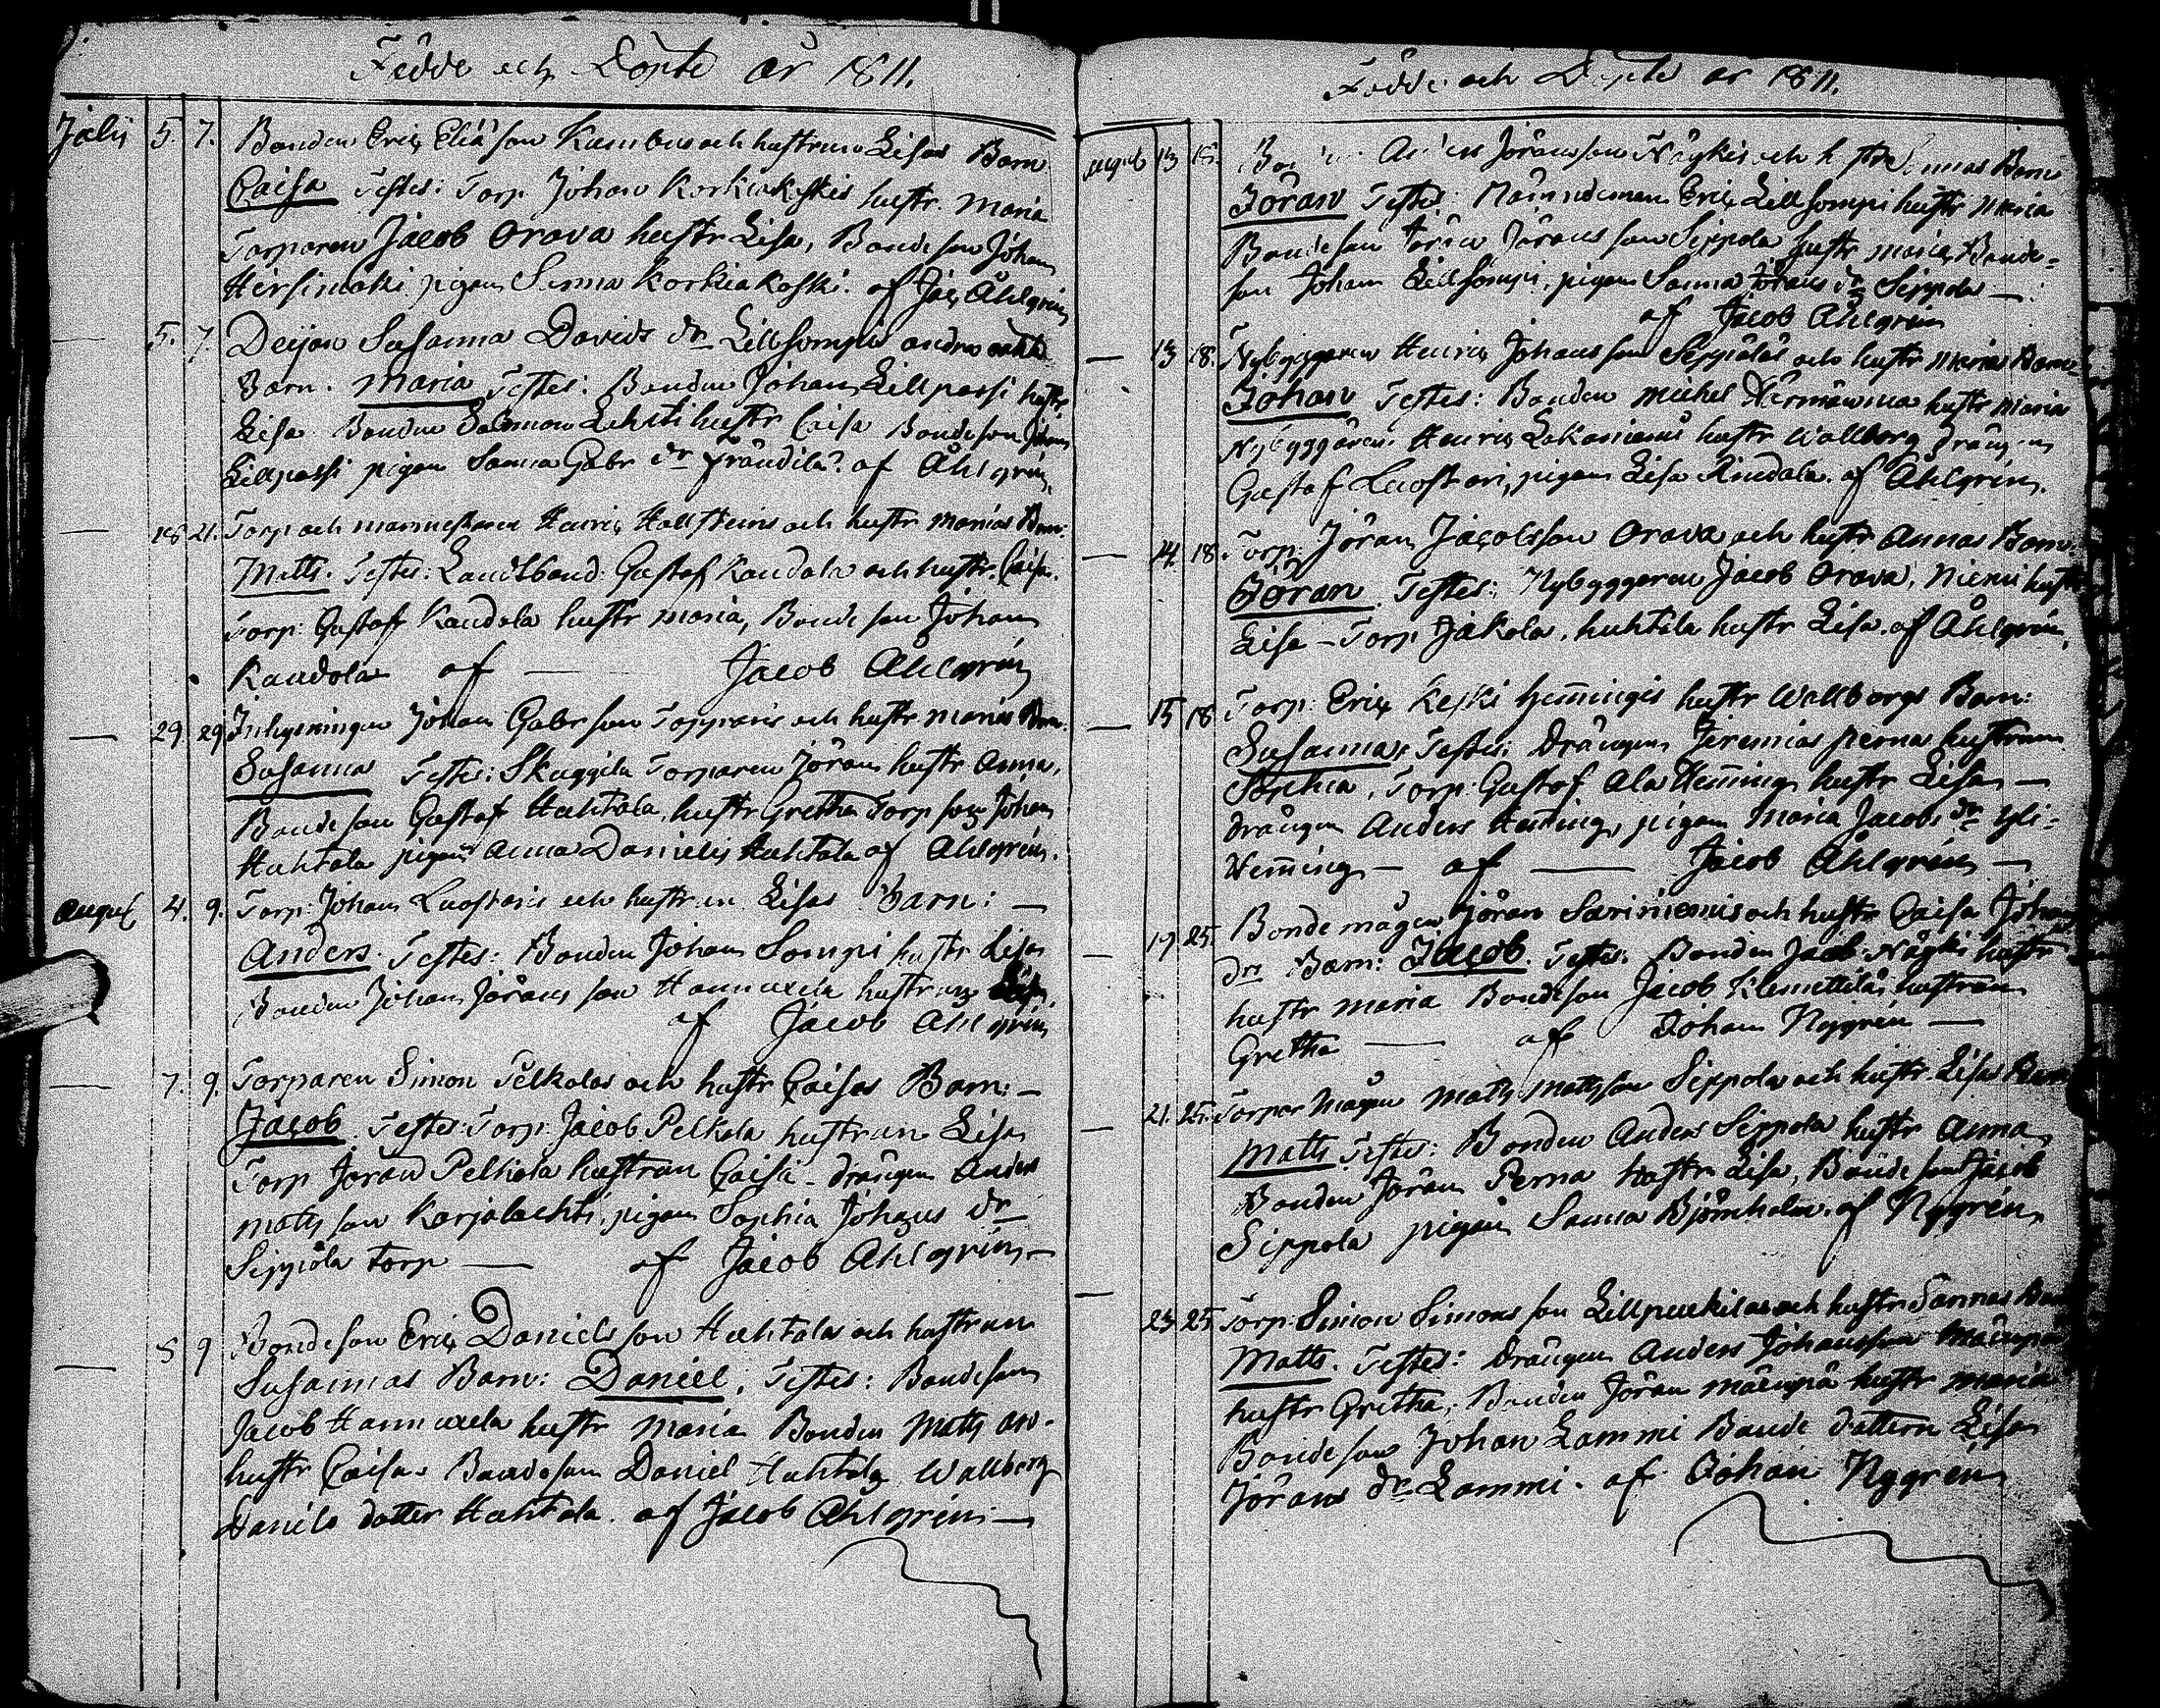 Födde och Döpte år 1811.
Julij 5. 7. Bonden Eric Elias son Kumbus och hustrun Lisas Barn
Caisa Testes: Torp. Johan Korkiakoskis hustr. Maria
Torparen Jacob Orava hustr Lisa, Bondeson Johan
Hirsimäki pigan Sanna Korkiakoski. af Jac. Ahlgrén
— 5. 7. Deijan Susanna Davids dr Lillsompis andra oäkta
Barn. Maria Testes: Bonden Johan Lillpassi hustr
Lisa Bonden Salomon Lehsti hustr Caisa Bondeson Johan
Lillpassi pigan Sanna Gabr dr Frändilä. af Ahlgrén,
— 18 21. Torp och Henric Hallsteins och hustr Marias Barn:
Matts. Testes: Landtbond: Gustaf Kandola och hustr. Caisa.
Torp: Gustaf Kandola hustr Maria, Bonde son Johan
Kandola af — Jacob Ahlgrén
— 29. 29 Inhysningen Johan Gabr son Topparis och hustr Marias Barn.
Susanna Testes: Skuggila Torparen Jöran hustr Anna,
Bonde son Gustaf Huhtala, hustr Gretha Torp son Johan
Huhtala pigan Anna Daniels Huhtala af Ahlgrén.
August 4. 9. Torp: Johan Luostaris och hustrun Lisas Barn: —
Anders. Testes: Bonden Johan Sompi hustr Lisa
Bonden Johan Jörans son Hannuxela hustrun
af Jacob Ahlgrén
— 7. 9. Torparen Simon Pelkolas och hustr Caisas Barn: —
Jacob. Testes: Torp: Jacob Pelkola hustrun Lisa
Torp Jöran Pelkola hustrun Caisa - drängen Anders
Matts son Karjalachti, pigan Sophia Johans dr
Sippola torp — af Jacob Ahlgrén —
— 8 9 Bondeson Eric Daniels son Huhtalas och hustrun
Susannas Barn: Daniel. Testes: Bondeson
Jacob Hannuxela hustr Maria Bonden Matts
hustr Caisa. Bondeson Daniel Huhtala Wallborg
Daniels dotter Huhtala. af Jacob Ahlgrén —
Födde och Döpte år 1811.
August 13 18. Jöransson Näykis och Sannas Barn
Jöran Testes: Nämndeman Eric Lillsompi hustr Maria
Bondeson Jöran Jörans son Sippola hustr Maria, Bonde-
son Johan Lillsompi, pigan Sanna Jörans dr Sippola —
af Jacob Ahlgrén
— 13 18. Nybyggaren Henric Johans son Sippolas och hustr Marias Barn
Johan Testes: Bonden Michel hustr Maria
Nybyggaren Henric hustr Wallborg drängen
Gustaf Luostari, pigan Lisa Rindala. af Ahlgrén.
— 14. 18. Torp: Jöran Jacobsson Orava och hustr Annas Barn
Jöran. Testes: Nybyggaren Jacob Orava, Niemi hustr
Lisa - Torp Jakola. Huhtala hustr Lisa. af Ahlgrén,
— 15 18 Torp: Eric Keski Hemingis hustr Wallborgs Barn:
Susanna. Testes: Drängen Jeremias Perna hustrun
Sophia, Torp: Gustaf Ala Heming hustr Lisa —
drängen Anders Heming, pigan Maria Jacobs dr Yli-
Heming — af — Jacob Ahlgrén —
— 19. 25. Bondemågen Jöran Sariniemis och hustr Caisa Johans
drs Barn: Jacob. Testes. Bonden Jacob Näyki hustr
hustr Maria Bondeson Jacob Klemettilä, hustrun
Gretha — af Johan Nygrén —
— 21. 25. Torpar Mågen Matts Mattsson Sippolas och hustr. Lisas Barn
Matts Testes: Bonden Anders Sippola hustr Anna,
Bonden Jöran Perna hustr Lisa, Bonde son Jacob
Sippola pigan Sanna Björnholm. af Nygrén,
— 23. 25 Torp: Simon Simons son Lillpuukilas och hustr Sannas Barn
Matts. Testes: Drängen Anders Johansson Mäenpää
hustr Gretha, Bonden Jöran Mäenpää hustr Maria
Bondeson Johan Lammi Bonde dottern Lisa
Jörans dr Lammi. af Johan Nygrén